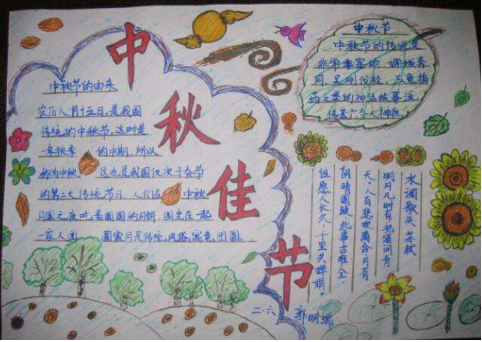 中
秋
佳
节
中秋节的由来
农历八月十五日,是我国
传统的中秋节。这时是
一年秋季的中期,所以
称为中秋 这也是我国仅次于春节
的第二大传统节日。人们在中秋
月圆之夜吃着圆圆的月饼 围坐在一起
一家人团
中秋节
中秋节的传说是
非常丰富的,嫦娥奔
月,吴刚伐桂,玉兔捣
药之类的神话故事流
传甚广
水调歌头 苏轼
明月几时有 把酒问青
天。人有悲欢离合月有
阴晴圆缺,此事古难全。
但愿人长久,千里共婵娟。
二.六